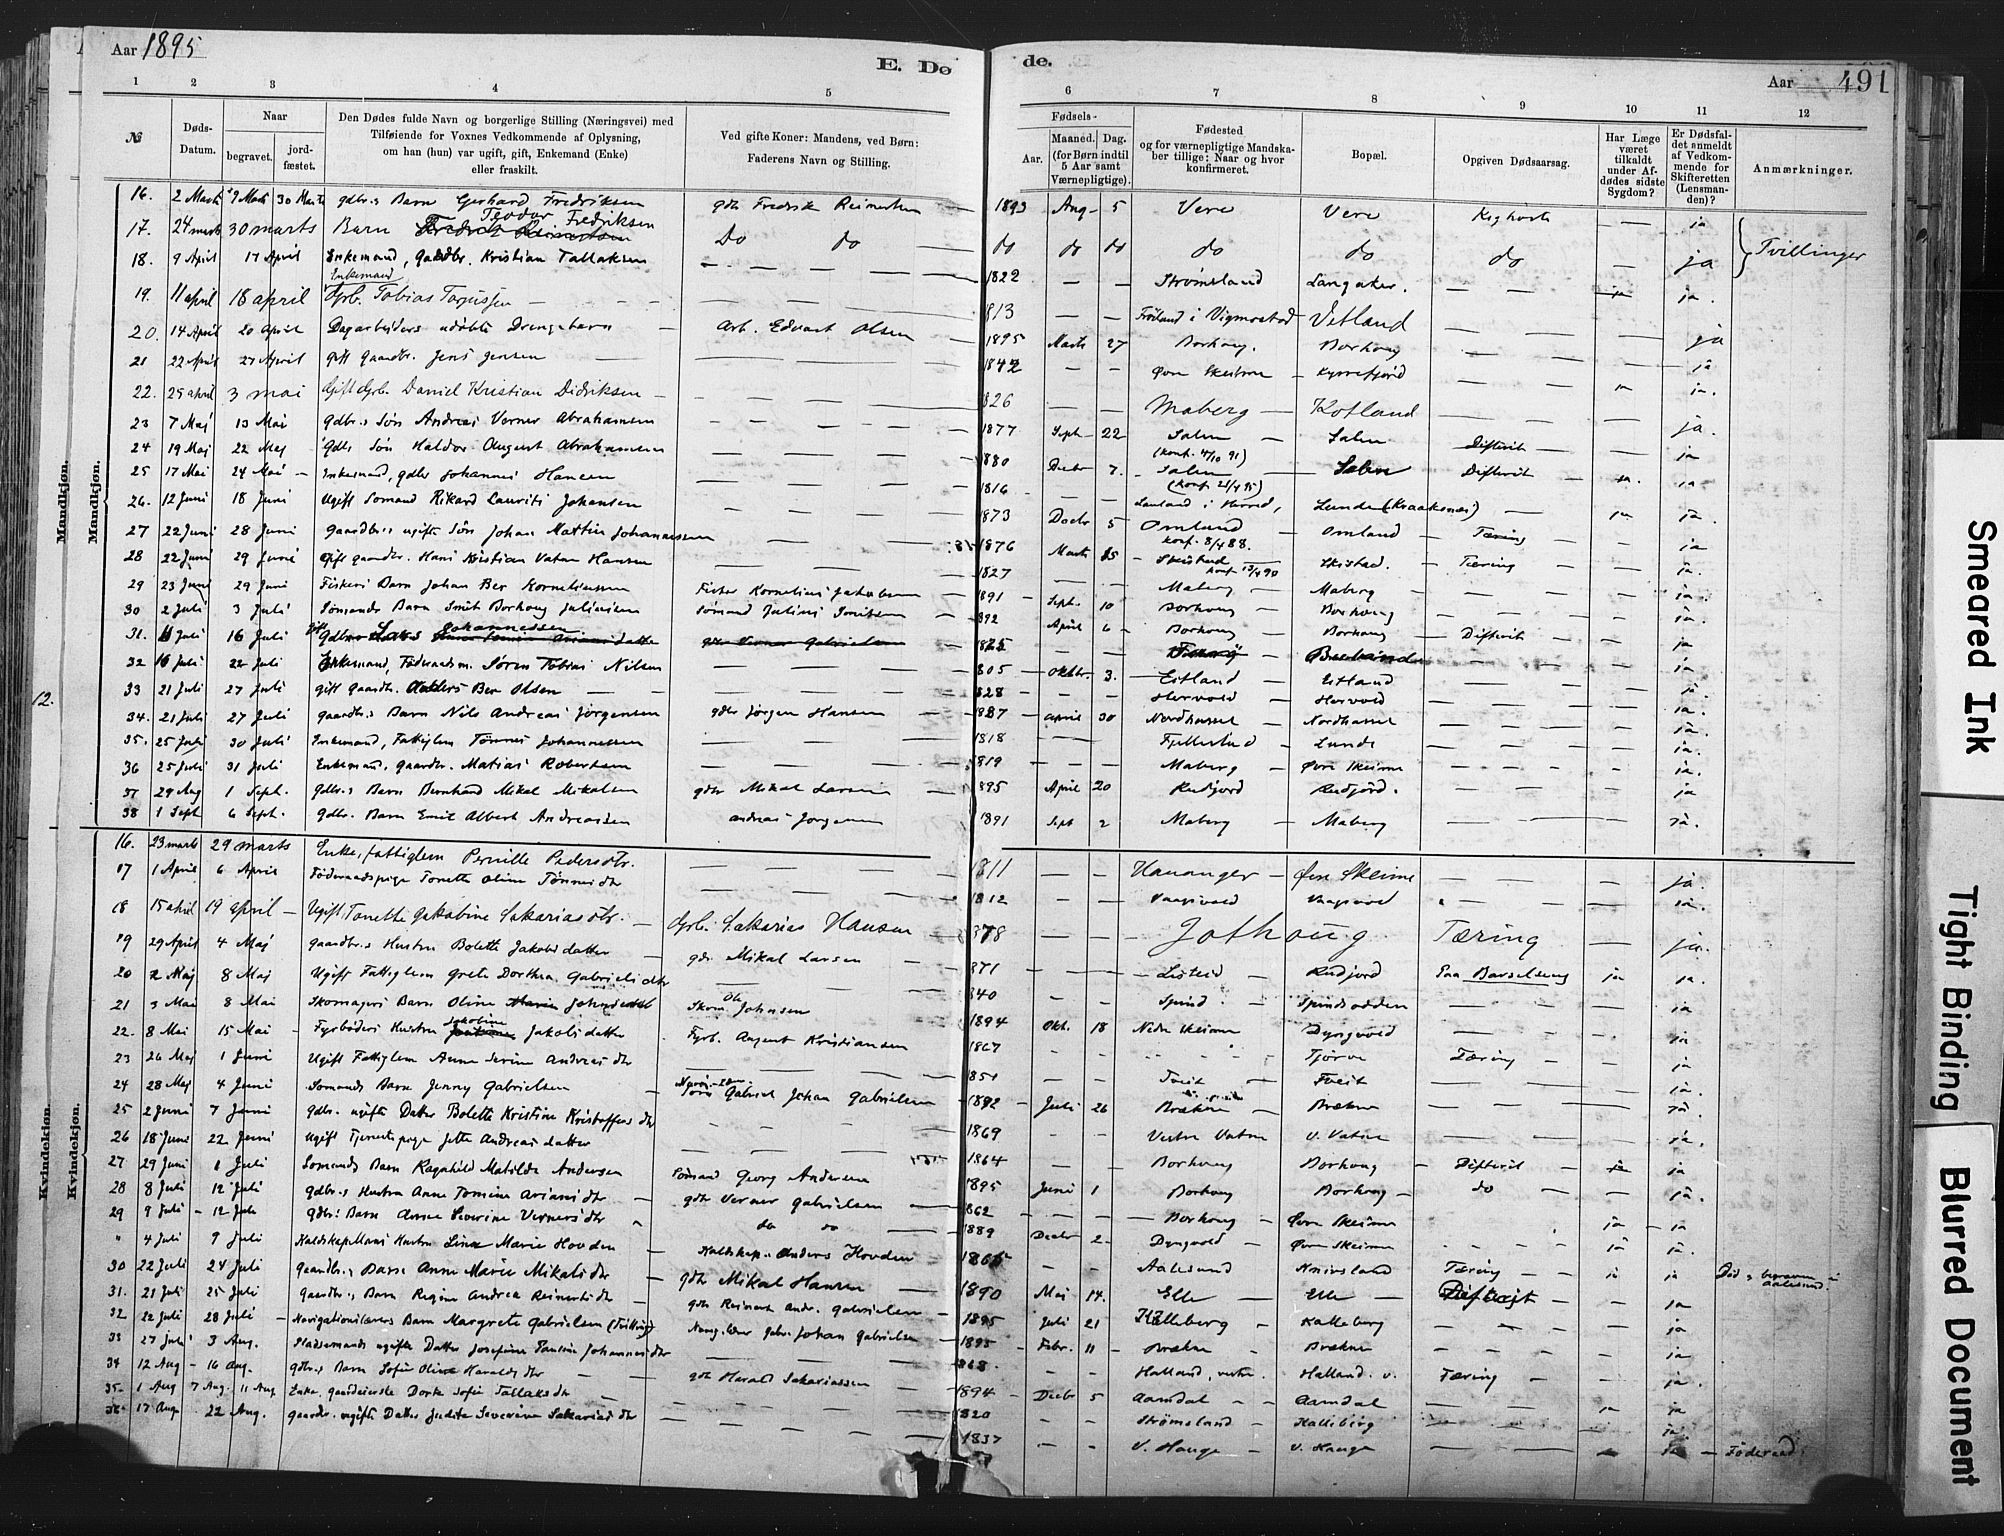 Aar 1895
E. Dø
de.
Aar
491
1 2 3 4 5 6 7 8 9 10 11 12
№
Døds-Datum.
Naar
begravet.
jord-fæstet.
Den Dødes fulde Navn og borgerlige Stilling (Næringsvei) med
Tilføiende for Voxnes Vedkommende af Oplysning,
om han (hun) var ugift, gift, Enkemand (Enke)
eller fraskilt.
Ved gifte Koner: Mandens, ved Børn:
Faderens Navn og Stilling.
Fødsels-
Aar.
Maaned. Dag.
(for Børn indtil
5 Aar samt
Værnepligtige).
Fødested
og for værnepligtige Mandska-
ber tillige: Naar og hvor
konfirmeret.
Bopæl.
Opgiven Dødsaarsag.
Har Læge
været
tilkaldt
under Af-
dødes sidste
Sygdom?
Er Dødsfal-
det anmeldt
af Vedkom-
mende for
Skifteretten
(Lensman-
den)?
Anmærkninger.
Mandkjøn.
Mandkjøn.
16. 2 Marts 9 Marts 30 Marts gdbr.s Barn Gerhard Fredriksen gdbr Fredrik Reinertsen 1893 Aug 5 Vere Vere Kighoste ja
17. 24 marts 30 marts Barn Teodor Fredriksen Do do do do do do do do ja Tvillinger
18. 9 April 17 April Enkemand, Gaardbr. Kristian Tallaksen 1822 Strømsland Langaker. ja.
19. 11 april 18 april Enkemand Gbr. Tobias Tarjussen 1813 Frøiland i Vigmostad Vetland
20. 14 April 20 April Dagarbeiders udøbte Drengebarn Arb. Edvart Olsen 1895 Marts 27 Borhoug. Borhoug ja
21 22 April 27 April Gift Gaardbr. Jens Jensen 1842 Øvre Skeime Kyrrefjord ja
22. 25 april 3 mai Gift Gbr. Daniel Kristian Didriksen 1826 Maberg Kotland ja.
23 7 Maj 13 Mai Gdbr.s Søn Andreas Verner Abrahamsen 1877 Sept 22 Salen (konf. 4/10 91) Salen Difterit ja
24 19 Maj 22 Maj Gdbr Søn Haldor August Abrahamsen 1880 Decbr 7. Salen Salen Difterit ja
25 17 Mai 24 Mai Enkemand, gdbr Johannes Hansen 1816 i Herred, Lunde (Kraaknes)
26. 12 Juni 18 Juni Ugift Sømand Rikard Laurits Johansen 1873 Decbr 5 Omland konf. 8/4 88. Omland Tæring ja
27 22 Juni 28 Juni Gaardbr.s ugifte Søn Johan Mathias Johannessen 1876 Marts 15 Skeistad Skistad. Tæring ja.
28 22 Juni 29 Juni Gift gaardbr. Hans Kristian Vatne Hansen 1827 Maberg Maberg ja.
29 23 Juni 29 Juni Fiskers Barn Johan Ber Korneliussen Fisker Kornelius Jakobsen 1891 Sept. 10 Borhoug Borhoug ja.
30 2 Juli 3 Juli Sømands Barn Smit Borhoug Juliussen Sømand Julius Smitsen 1892 April 6 Borhoug Borhoug Difterit ja.
31. 11 Juli 16 Juli Johannessen 1825 ja
32 16 Juli 22 Juli Enkemand, Føderaadsm. Søren Tobias Nilsen 1805 Oktbr. 3. Eitland Eitland ja
33 21 Juli 27 Juli Gift Gaardbr. Anders Ber Olsen 1828 Hervold Hervold ja.
34. 21 Juli 27 Juli Gaardbr.s Barn Nils Andreas Jørgensen gdbr Jørgen Hansen 1887 April 30 Nordhassel Nordhassel ja.
35. 25 Juli 30 Juli Enkemand, Fattiglem Tønnes Johannessen 1818 Fjellestad Lunde ja.
36 25 Juli 31 Juli Enkemand, gaardbr. Matias Robertsen 1819 Maberg Øvre Skeime ja.
37 29 Aug 1 Sept. Gdbr.s Barn Bernhard Mikal Mikalsen gdbr Mikal Larsen 1895 April 20 Rudjord Rudjord. ja
38 1 Sept 6 Sept. Gdbr. Barn Emil Albert Andreassen Andreas Jørgensen 1891 Sept 2 Maberg Maberg ja.
12.
Kvindekjøn.
Kvindekjøn.
16. 23 marts 29 marts Enke, fattiglem Pernille Pedersdtr. 1811 Hananger Øvre Skeime ja.
17 1 April 6 April Føderaadspige Tonette Oline Tønnesdtr 1812 Vaagsvold Vaagsvold ja.
18 15 april 19 april Ugift Tonette Jakobine Sakariasdtr. Gbr. Sakarias Hansen 1878 Jothoug Tæring ja.
19 29 April 4 Maj Gaardbr.s Hustru Bolette Jakobsdatter gdr Mikal Larsen 1871 Listeid Rudjord Paa Barselseng ja ja.
20 2 Maj 8 Maj Ugift Fattiglem Grete Dorthea Gabrielsdtr 1840 Spind Spindsodden ja
21 3 Mai 8 Mai Skomagers Barn Oline Johnsen Skom. Ole Johnsen 1894 Okt. 18 Nedre Skeime Dyngvold ja
22. 8 Mai 15 Mai Fyrbøders Hustru Jakobine Jakobsdatter Fyrb. August Kristiansen 1867 Tjørve Tæring ja
23 26 Maj 1 Juni Ugift Fattiglem Anne Serine Andreasdtr 1851 Tveit Tveit ja
24 28 Maj 4 Juni Sømands Barn Jenny Gabrielsen Gabriel Johan Gabrielsen 1892 Juli 26 Brækne Brækne ja.
25 2 Juni 7 Juni Gdbr. ugifte Datter Bolette Kristine Kristoffersdtr 1869 Vestre Vatne V. Vatne ja.
26 18 Juni 22 Juni Ugift Tjenestepige Jette Andreasdatter 1864 Borhoug Borhoug Difterit ja ja
27 29 Juni 1 Juli Sømands Barn Ragnhild Matilde Andersen Sømand Georg Andersen 1895 Juni 1 Borhoug Borhoug do ja.
28 8 Juli 12 Juli Gdbr.s Hustru Anne Tomine Ariansdtr gdbr Verner Gabrielsen 1862 Borhoug Øvre Skeime ja ja
29 9 Juli 12 Juli Gdbr.s Barn Anne Severine Vernersdtr do do 1889 Decbr 2. Dyngvold Øvre Skeime ja ja.
" 4 Juli 9 Juli Kaldskapellans Hustru Lina Marie Hovden Kaldskap. Anders Hovden 1865 Aalesund Knivsland Tæring ja ja Død & begraven i Aalesund.
30 22 Juli 24 Juli Gaardbr.s Barn Anne Marie Mikalsdtr gdbr Mikal Hansen 1890 Mai 14. Elle Elle Difterit ja
31. 21 Juli 25 Juli Gaardbr.s Barn Regine Andrea Reinertsdtr gdbr Reinert Andr. Gabrielsen 1895 Juli 21 Kalleberg Kalleberg ja
32 22 Juli 28 Juli Navigationslærers Barn Margrete Gabrielsen (Tvilling) Navig.lærer Gabr. Johan Gabrielsen 1895 Febr. 11 Brækne Brækne ja
33 27 Juli 3 Aug. Pladsemands ugifte Datter Josefine Pauline Johannesdtr 1868 Halland, vestre Halland. v. Tæring ja.
34 12 Aug 16 Aug. gdbr.s Barn Sofie Oline Haraldsdtr gdbr Harald Sakariassen 1894 Decbr 5 Aamdal Aamdal
35 1 Aug 7 Aug. 11 Aug Enke, gaardeierske Dorte Sofie Tallaksdtr 1820 Strømsland Kalleberg ja
36 17 Aug 22 Aug. Gaardbr. ugifte Datter Judite Severine Sakariasdtr 1837 V. Hauge V. Hauge ja Føderaad
Smeared Ink
Tight Binding
Blurred Document